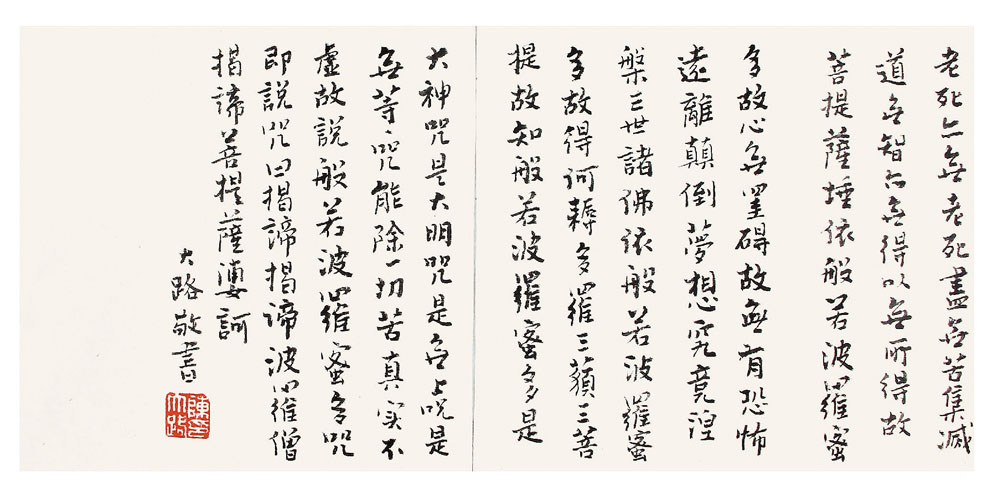 老死亦無老死盡無苦集滅
道無智亦無得以無所得故
菩提薩埵依般若波羅蜜
多故心無罣碍故無有恐怖
遠離顛倒夢想究竟涅
槃三世諸佛依般若波羅蜜
多故得阿耨多羅三藐三菩
提故知般若波羅蜜多是
大神咒是大明咒是無上咒是
無等々咒能除一切苦真实不
虛故說般若波羅蜜多咒
即說咒曰揭諦揭諦波羅僧
揭諦菩提薩婆訶
大路敬書